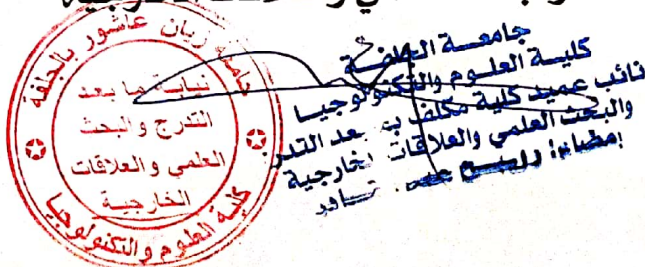 جامعة زيان عاشور بالجلفة
نيابة ما بعد
التدرج والبحث
العلمي والعلاقات
الخارجية
كلية العلوم والتكنولوجيا
جامعة الجلفة
كلية العلوم والتكنولوجيا
نائب عميد كلية مكلف بما بعد التدر
والبحث العلمي والعلاقات الخارجية
إمضاء: رويسع